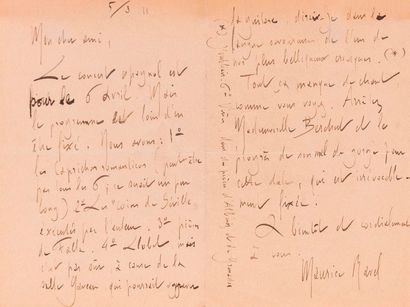 5/3 11
Mon cher ami,
Le concert espagnol est
pour le 6 avril. Mais
le programme est loin d'en
être fixé. Nous avons : 1º
les caprichos romanticos (peut être
pas tous les 6, ce serait un peu
long) 2º Les "coins de Séville"
exécutés par l'auteur. 3º pièces
de Falla. 4º Llobet mais
c'est pas sûr à cause de la
salle Gaveau qui pourrait
la guitare, dirais-je dans la
langue savoureuse de l'un de
nos plus belliqueux critiques. (*)
Tout ça manque de chant,
comme vous voyez.
Mademoiselle et la
de gorge pour
cette date, qui est irrévocable-
ment fixée.
A bientôt et cordialement
à vous.
Maurice Ravel